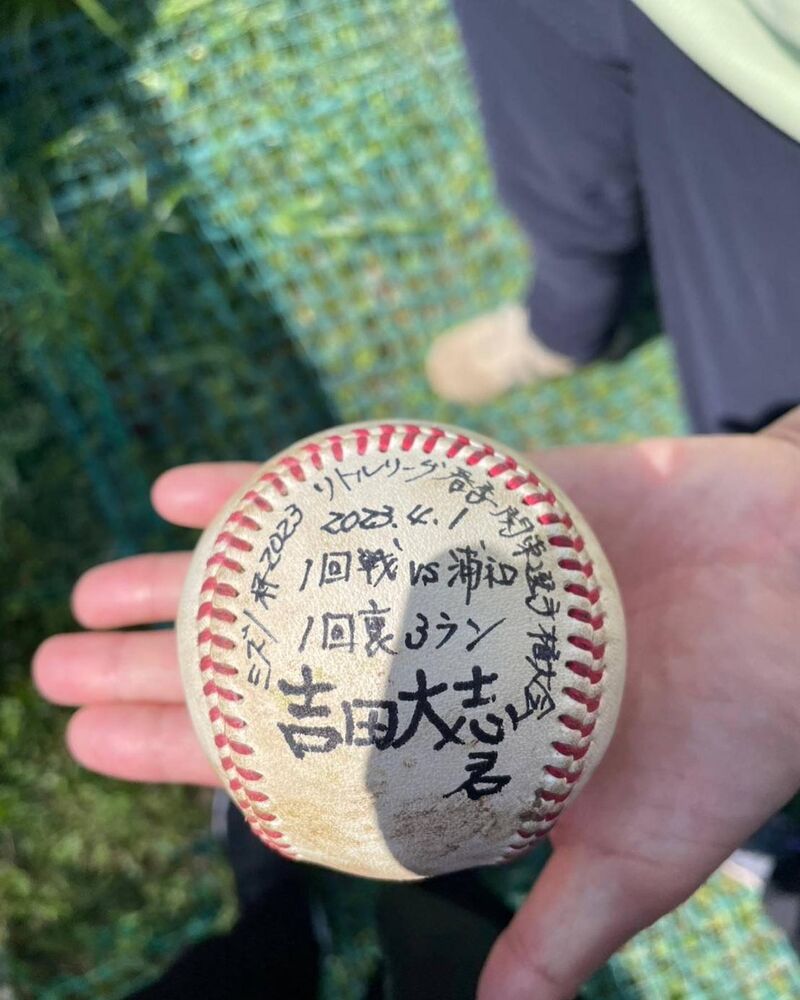 ミズノ杯2023 リトルリーグ春季関東選手権大会
2023.4.1
1回戦 vs 浦和
1回裏 3ラン
吉田大志
君